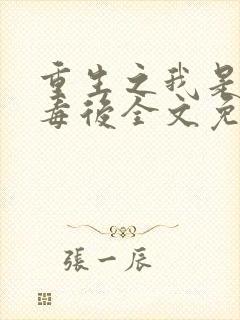 重生之我是
毒後全文免
張一辰